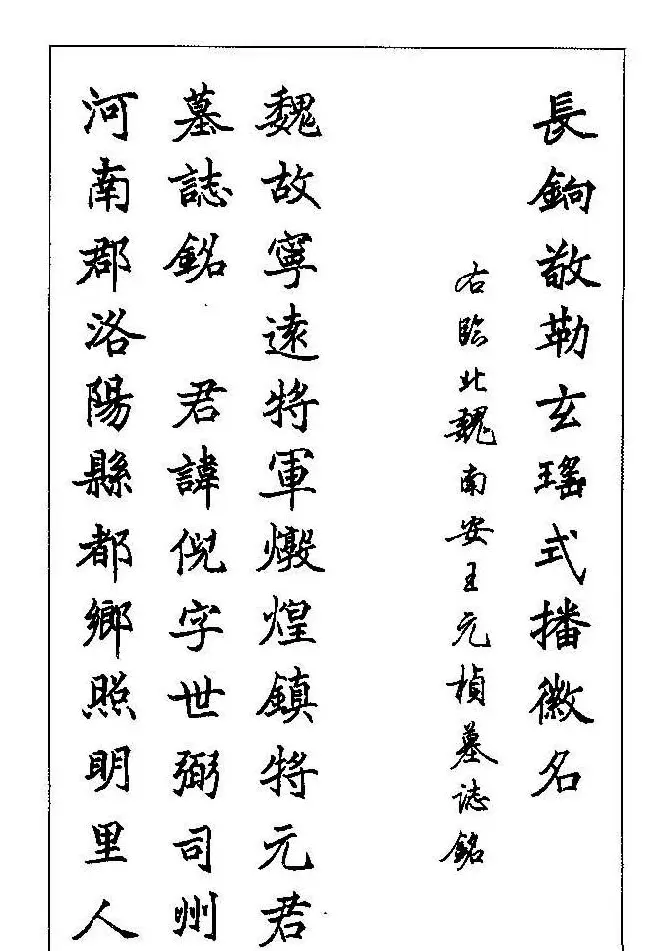 長銁敬勒玄瑤式播徽名
右臨北魏南安王元楨墓誌銘
魏故寧遠將軍燉煌鎮將元君
墓誌銘 君諱倪字世弼司州
河南郡洛陽縣都鄉照明里人